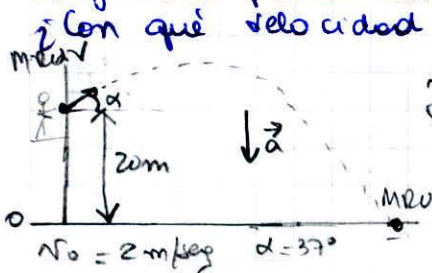 ¿Con qué velocidad
MRUV
α
20m
a
MRU
0
V₀ = 2 m/seg α = 37°